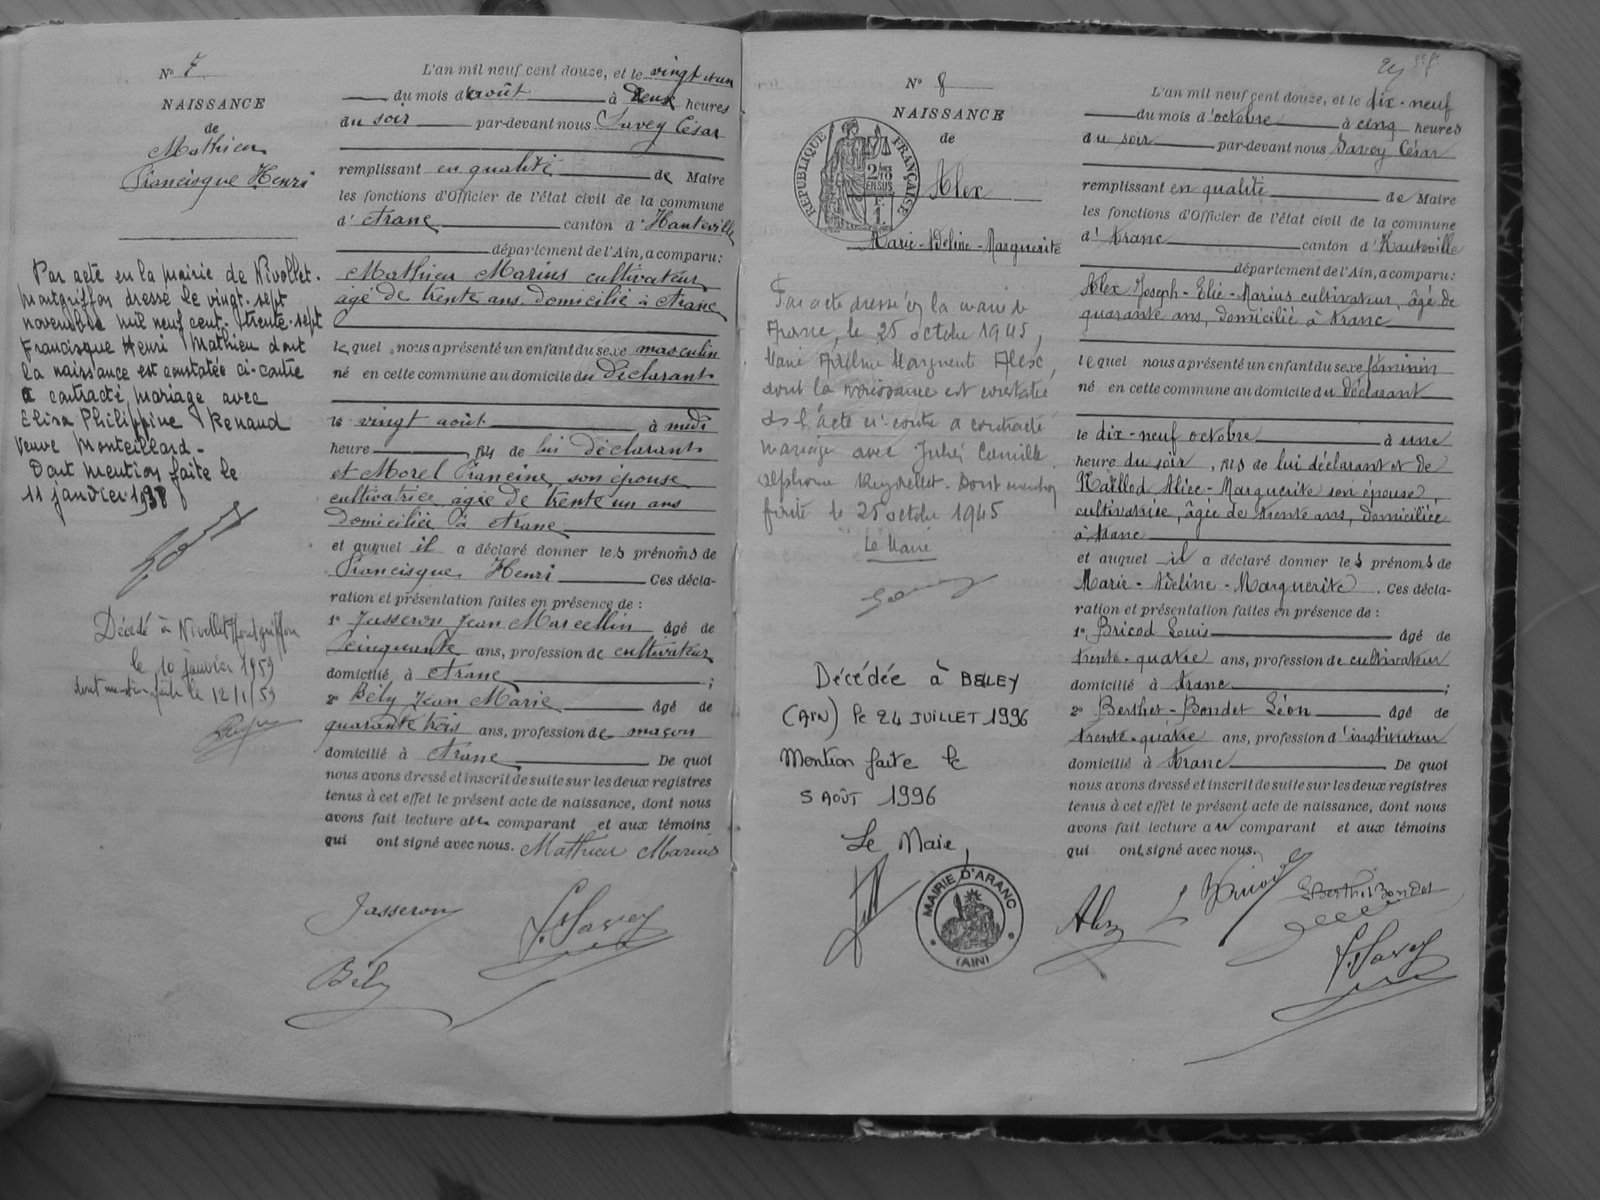 N° 7
NAISSANCE
de
Mathieu
Francisque Henri
Par acte en la mairie de Nivollet-
Montgriffon dressé le vingt-sept
novembre mil neuf cent trente-sept
Francisque Henri Mathieu dont
la naissance est constatée ci-contre
a contracté mariage avec
Elisa Philippine Renaud
veuve Monteillard -
Dont mention faite le
11 janvier 1938
Décédé à Nivollet Montgriffon
le 10 janvier 1959
dont mention faite le 12/1/59
L'an mil neuf cent douze, et le vingt et un
du mois d'août à deux heures
du soir par-devant nous Savey César
remplissant en qualité de Maire
les fonctions d'Officier de l'état civil de la commune
d' Aranc canton d'Hauteville
département de l'Ain, a comparu:
Mathieu Marius cultivateur
âgé de trente ans domicilié à Aranc
lequel nous a présenté un enfant du sexe masculin
né en cette commune au domicile du déclarant
le vingt août à midi
heure, fils de lui déclarant
et Morel Francine, son épouse
cultivatrice âgée de trente un ans
domiciliée à Aranc
et auquel il a déclaré donner les prénoms de
Francisque Henri Ces décla-
ration et présentation faites en présence de :
1° Jasseron Jean Marcellin âgé de
cinquante ans, profession de cultivateur
domicilié à Aranc ;
2° Bély Jean Marie âgé de
quarante trois ans, profession de maçon
domicilié à Aranc De quoi
nous avons dressé et inscrit de suite sur les deux registres
tenus à cet effet le présent acte de naissance, dont nous
avons fait lecture au comparant et aux témoins
qui ont signé avec nous. Mathieu Marius
Jasseron
Bély
Savey
N° 8
NAISSANCE
de
RÉPUBLIQUE FRANÇAISE
2/10
EN SUS
Alex
Marie-Adeline-Marguerite
Par acte dressé en la mairie de
Aranc, le 25 octobre 1945,
Marie Adeline Marguerite Alex,
dont la naissance est constatée
ds l'acte ci-contre a contracté
mariage avec Camille
Alphonse Dont mention
faite le 25 octobre 1945
Le Maire
Décédée à BELEY
(AIN) le 24 JUILLET 1996
Mention faite le
5 AOÛT 1996
Le Maire,
MAIRIE D'ARANC
(AIN)
L'an mil neuf cent douze, et le dix-neuf
du mois d'octobre à cinq heures
du soir par-devant nous Savey César
remplissant en qualité de Maire
les fonctions d'Officier de l'état civil de la commune
d' Aranc canton d'Hauteville
département de l'Ain, a comparu:
Alex Joseph-Elie-Marius cultivateur, âgé de
quarante ans, domicilié à Aranc
lequel nous a présenté un enfant du sexe féminin
né en cette commune au domicile du déclarant
le dix-neuf octobre à une
heure du soir, fils de lui déclarant et de
Alice-Marguerite son épouse,
cultivatrice, âgée de trente ans, domiciliée
à Aranc
et auquel il a déclaré donner les prénoms de
Marie-Adeline-Marguerite. Ces décla-
ration et présentation faites en présence de :
1° Bricod Louis âgé de
trente-quatre ans, profession de cultivateur
domicilié à Aranc ;
2° Berthet-Bondet Léon âgé de
trente-quatre ans, profession d'instituteur
domicilié à Aranc De quoi
nous avons dressé et inscrit de suite sur les deux registres
tenus à cet effet le présent acte de naissance, dont nous
avons fait lecture au comparant et aux témoins
qui ont signé avec nous.
Alex
Berthet Bondet
Savey